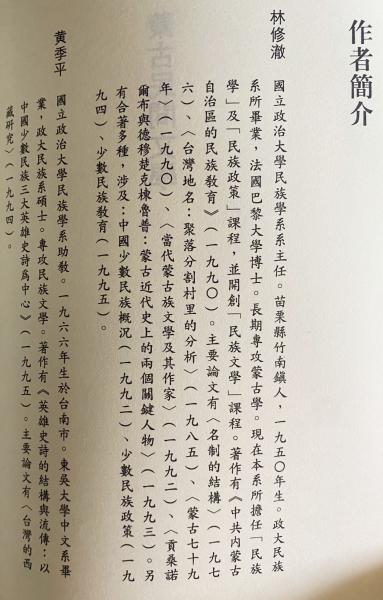 作者簡介
林修澈
國立政治大學民族學系系主任。苗栗縣竹南鎮人，一九五〇年生。政大民族
系所畢業，法國巴黎大學博士。長期專攻蒙古學。現在本系所擔任「民族
學」及「民族政策」課程，並開創「民族文學」課程。著作有《中共內蒙古
自治區的民族教育》（一九九〇）。主要論文有〈名制的結構〉（一九七
六）、〈台灣地名：聚落分割村里的分析〉（一九八五）、〈蒙古七十九
年〉（一九九〇）、〈當代蒙古族文學及其作家〉（一九九二）、〈貢桑諾
爾布與德穆楚克棟魯普：蒙古近代史上的兩個關鍵人物〉（一九九三）。另
有合著多種，涉及：中國少數民族概況（一九九二）、少數民族政策（一九
九四）、少數民族教育（一九九五）。
黃季平
國立政治大學民族學系助教。一九六六年生於台南市。東吳大學中文系畢
業，政大民族系碩士。專攻民族文學。著作有《英雄史詩的結構與流傳：以
中國少數民族三大英雄史詩為中心》（一九九五）。主要論文有〈台灣的西
藏研究〉（一九九四）。